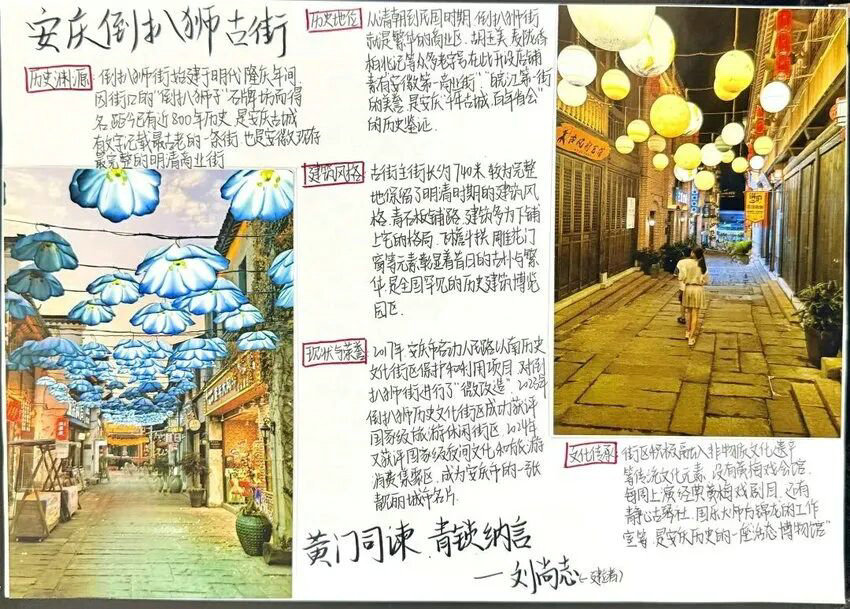 安庆倒扒狮古街
历史渊源：倒扒狮街始建于明代隆庆年间,
因街口的“倒扒狮子”石牌坊而得
名,距今已有近800年历史,是安庆古城
有文字记载最古老的一条街,也是安徽又现存
最完整的明清商业街
历史地位：从清朝到民国时期,倒扒狮街
就是繁华的商业区.胡玉美、麦陇香
柏兆记等众多老字号在此开设店铺
素有安徽第一商业街”,“皖江第一街
的美誉,是安庆“千年古城,百年省会”
的历史鉴证.
建筑风格：古街主街长约740米,较为完整
地保留了明清时期的建筑风
格.青石板铺路,建筑多为下铺
上宅的格局.飞檐斗拱,雕花门
窗等元素彰显着昔日的古朴与繁
华,是全国罕见的历史建筑博览
园区.
现状与荣誉：2017年,安庆市启动人民路以南历史
文化街区保护和利用项目,对倒
扒狮街进行了“微改造”2023年
倒扒狮历史文化街区成功获评
国家级旅游休闲街区,2024年
又获评国家级夜间文化和旅游
消费集聚区,成为安庆市的一张
靓丽城市名片.
文化传承：街区积极融入非物质文化遗产
等传统文化元素,设有黄梅戏会馆,
每周上演经典黄梅戏剧目,还有
静心古琴社,国乐大师方锦龙的工作
室等,是安庆历史的一座“活态博物馆”
黄门司谏,青锁纳言
—刘尚志